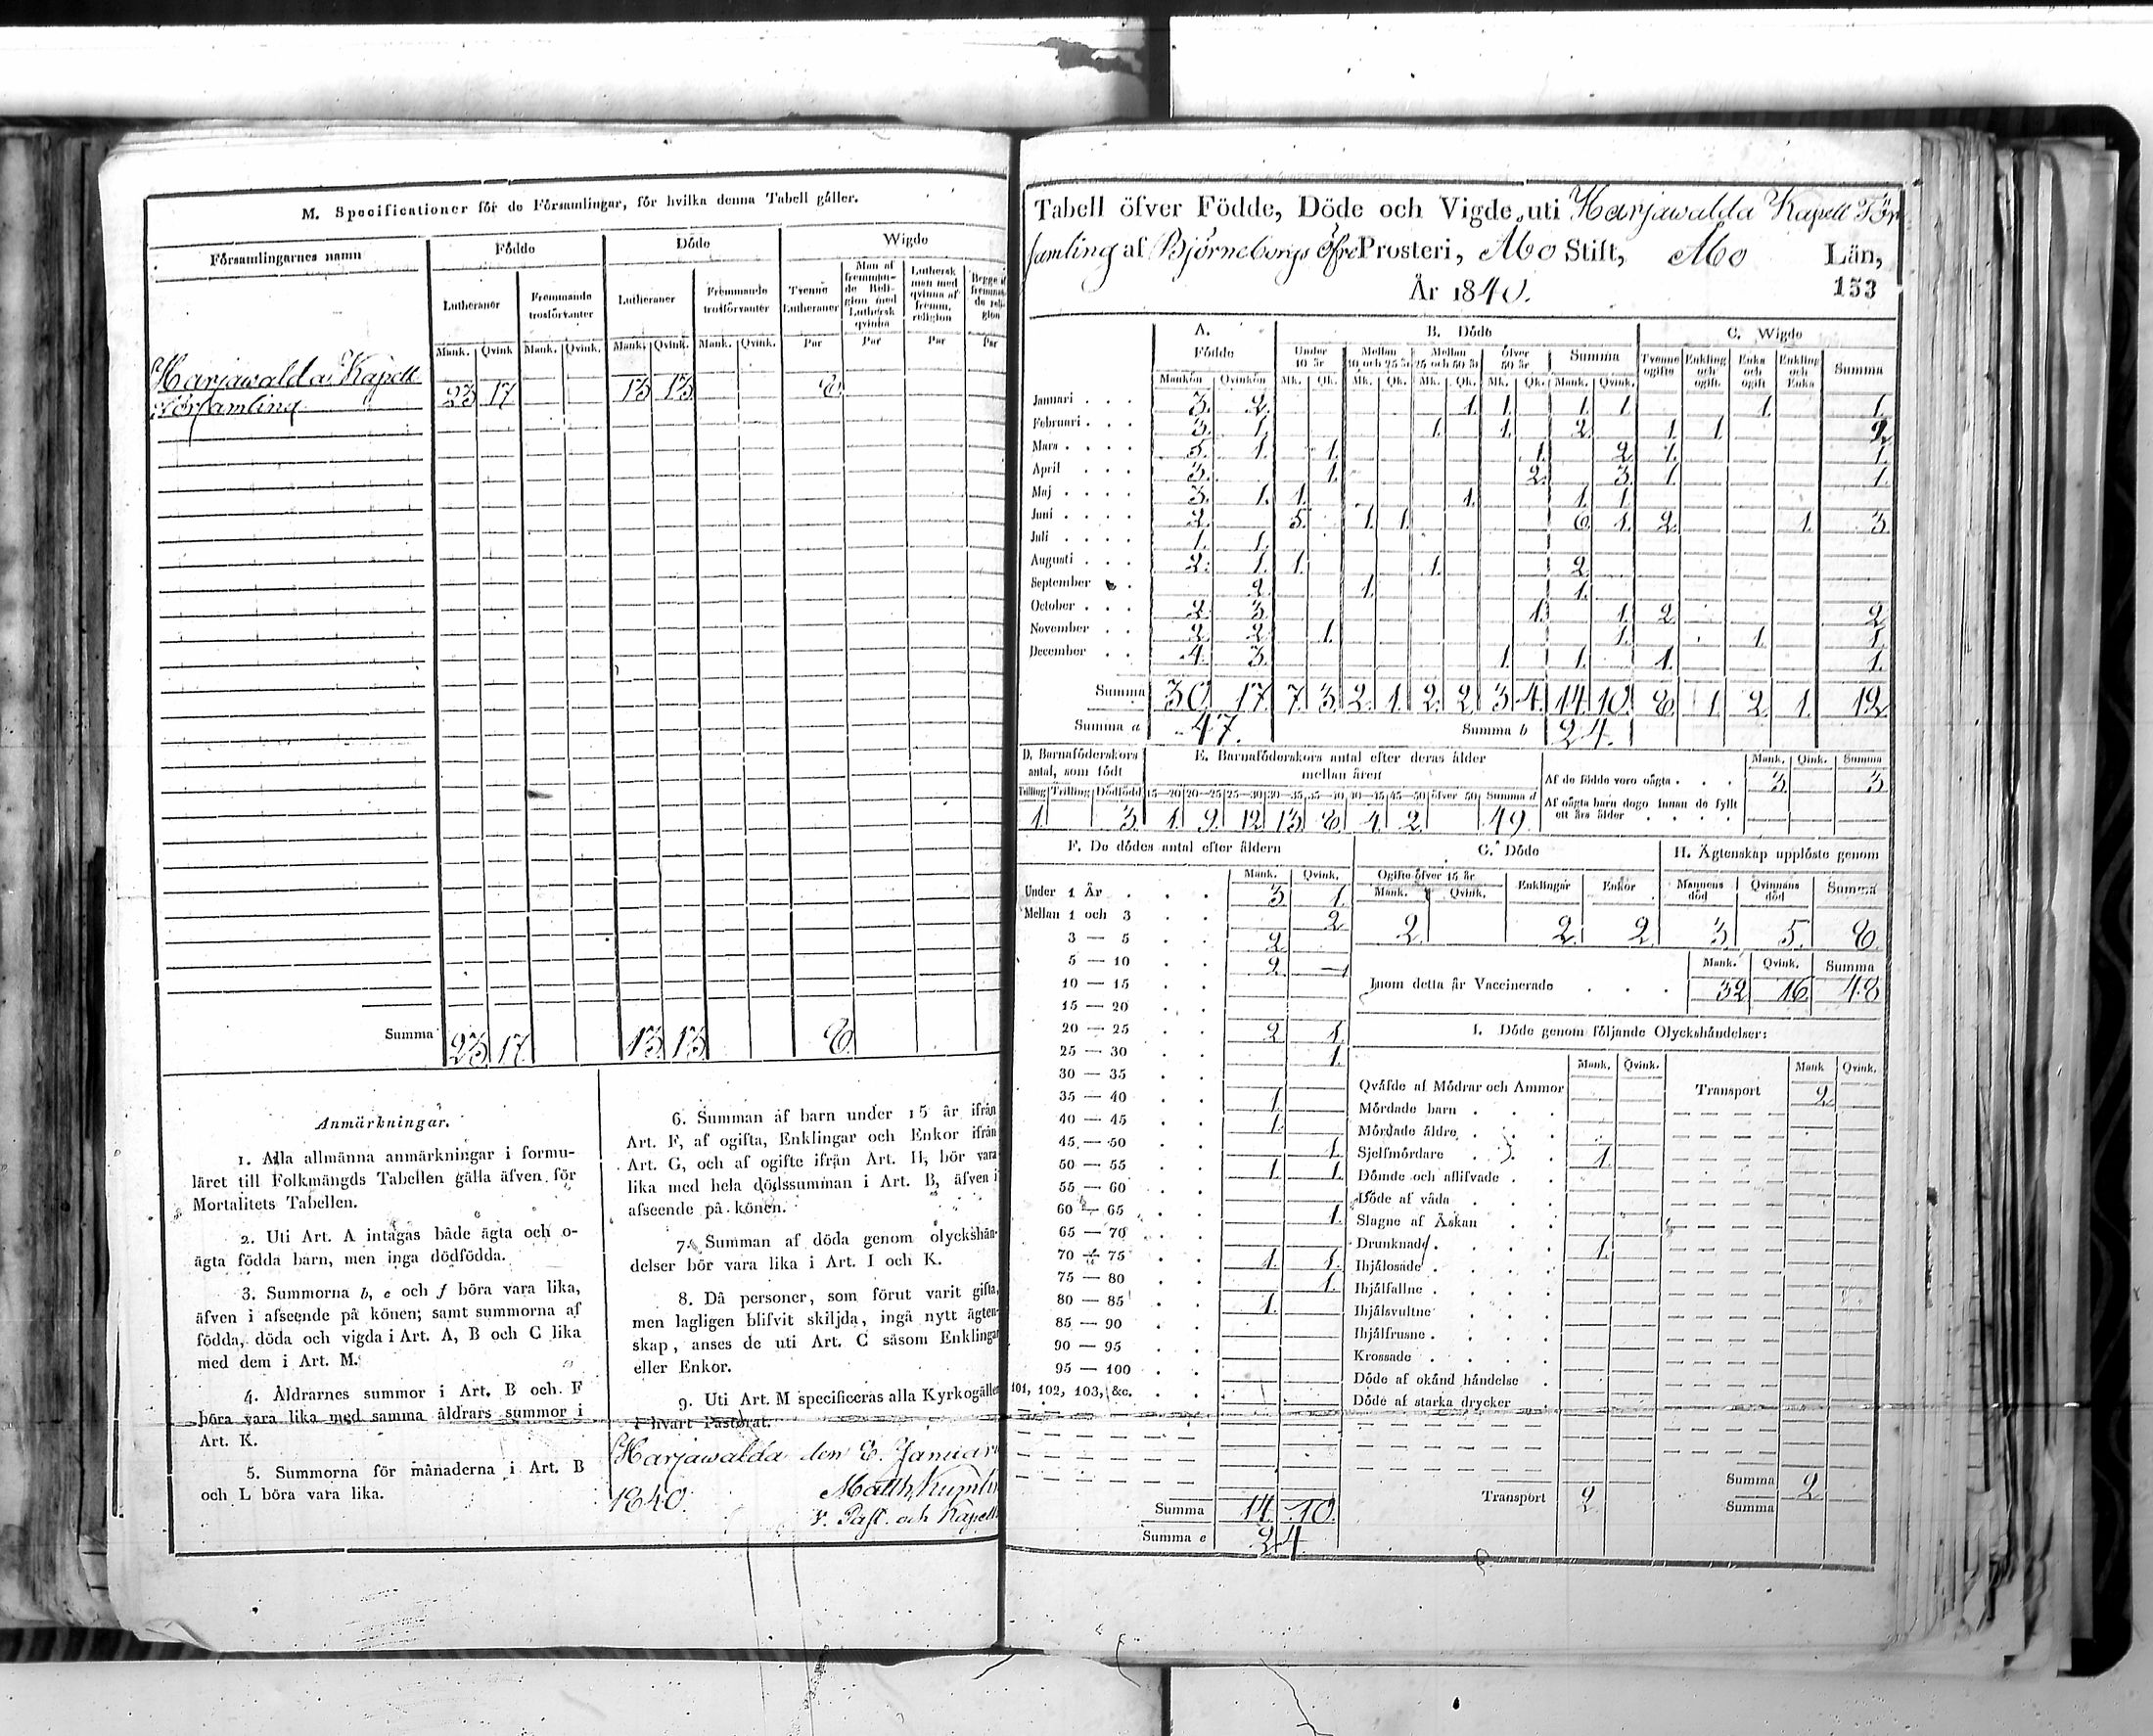 M. Specificationer för de Församlingar, för hvilka denna Tabell gäller.
Församlingarnes namn
Födde
Döde
Wigde
Lutheraner
Fremmande trosförvanter
Lutheraner
Fremmande trosförvanter
Tvenne Lutheraner
Man af fremman-de Reli-gion med Luthersk qvinna
Luthersk man med qvinna af fremm. religion
Mank. Qvink Mank. Qvink. Mank. Qvink. Mank. Qvink. Par Par Par Par
Harjawalda Kapell
Församling 23 17 13 13 8
Summa 23 17 13 13 8.
Anmärkningar.
1. Alla allmänna anmärkningar i formu-
läret till Folkmängds Tabellen gälla äfven för
Mortalitets Tabellen.
2. Uti Art. A intagas både ägta och o-
ägta födda barn, men inga dödfödda.
3. Summorna b, e och f böra vara lika,
äfven i afseende på könen; samt summorna af
födda, döda och vigda i Art. A, B och C lika
med dem i Art. M.
4. Åldrarnes summor i Art. B och F
böra vara lika med samma åldrars summor i
Art. K.
5. Summorna för månaderna i Art. B
och L böra vara lika.
6. Summan af barn under 15 år ifrån
Art. F, af ogifta, Enklingar och Enkor ifrån
Art. G, och af ogifte ifrån Art. H, bör vara
lika med hela dödssumman i Art. B, äfven i
afseende på könen.
7. Summan af döda genom olyckshän-
delser bör vara lika i Art. I och K.
8. Då personer, som förut varit gifta,
men lagligen blifvit skiljda, ingå nytt ägten-
skap, anses de uti Art. C såsom Enklingar
eller Enkor.
9. Uti Art. M specificeras alla Kyrkogäller
i hvart Pastorat.
Harjawalda den 8. Januari
1840.
v. Past. och Kapell
Tabell öfver Födde, Döde och Vigde, uti Harjawalda Kapell För
samling af Björneborgs Öfre Prosteri, Åbo Stift, Åbo Län,
År 1840.
153
A. Födde
B. Döde
C. Wigde
Under 10 år
Mellan 10 och 25 år
Mellan 25 och 50 år
öfver 50 år
Summa
Tvenne ogifte
Enkling och ogift.
Enka och ogift
Enkling och Enka
Summa
Mankön Qvinkön Mk. Qk. Mk. Qk. Mk. Qk. Mk. Qk. Mank. Qvink.
Januari 3. 2. 1. 1. 1. 1. 1. 1.
Februari 3. 1. 1. 1. 2. 1. 1. 2.
Mars 5. 1. 1. 1. 2. 1. 1.
April 3. 1. 2. 3. 1. 1.
Maj 3. 1. 1. 1. 1. 1.
Juni 2. 5. 1. 1. 6. 1. 2. 1. 3.
Juli 1. 1.
Augusti 2. 1. 1. 1. 2.
September 2. 1. 1.
October 2. 3. 1. 1. 2. 2.
November 2. 2. 1. 1. 1. 1.
December 4. 3. 1. 1. 1. 1.
Summa 30 17 7. 3. 2. 1. 2. 2. 3. 4. 14. 10. 8. 1. 2. 1. 12
Summa a 47. Summa b 24.
D. Barnaföderskors antal, som födt
E. Barnaföderskors antal efter deras ålder mellan åren
Mank. Qink. Summa
Tvilling Trilling Dödfödd 15—20 20—25 25—30 30—35 35—40 40—45 45—50 öfver 50 Summa d
1. 3. 1. 9. 12. 13. 8. 4. 2. 49.
Af de födde voro oägta 3. 3.
Af oägta barn dogo innan de fyllt
ett års ålder
F. De dödes antal efter åldern
Mank. Qvink.
Under 1 År 3. 1.
Mellan 1 och 3 2.
3 — 5 2.
5 — 10 2. —
10 — 15
15 — 20
20 — 25 2. 1.
25 — 30 1.
30 — 35
35 — 40 1.
40 — 45 1.
45 — 50 1.
50 — 55 1. 1.
55 — 60
60 — 65 1.
65 — 70
70 — 75 1. 1.
75 — 80 1.
80 — 85 1.
85 — 90
90 — 95
95 — 100
101, 102, 103, &c.
Summa 14. 10.
Summa e 24
G. Döde
Ogifte öfver 15 år
Mank. Qvink.
Enklingar
Enkor
2. 2. 2.
H. Ägtenskap upplöste genom
Mannens död
Qvinnans död
Summa
3. 5. 8.
Mank. Qvink. Summa
Inom detta år Vaccinerade 32 16. 48
I. Döde genom följande Olyckshändelser:
Mank. Qvink. Mank Qvink.
Qväfde af Mödrar och Ammor
Transport 2.
Mördade barn
Mördade äldre
Sjelfmördare 1.
Dömde och aflifvade
Döde af våda
Slagne af Åskan
Drunknade 1.
Ihjälosade
Ihjälfallne
Ihjälsvultne
Ihjälfrusne
Krossade
Döde af okänd händelse
Döde af starka drycker
Transport 2.
Summa 2.
Summa